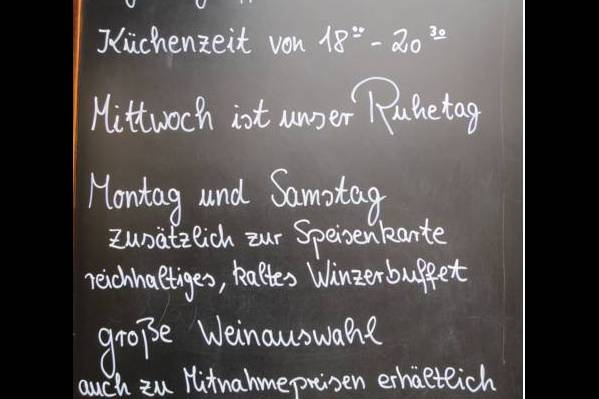 Küchenzeit von 18⁰⁰ - 20³⁰
Mittwoch ist unser Ruhetag
Montag und Samstag
zusätzlich zur Speisenkarte
reichhaltiges, kaltes Winzerbuffet
große Weinauswahl
auch zu Mitnahmepreisen erhältlich